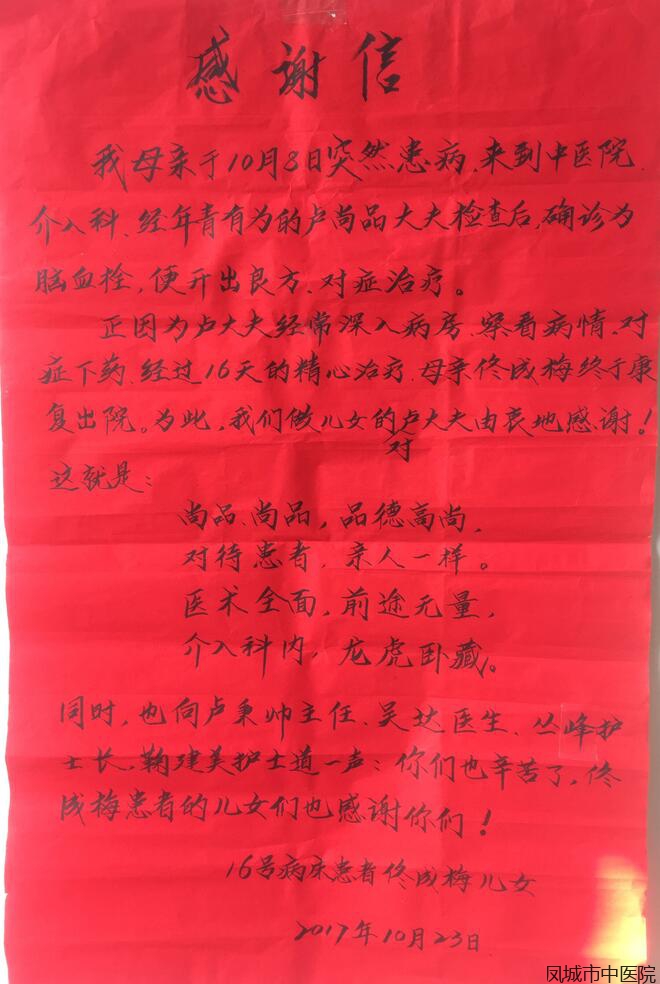 感谢信
我母亲于10月8日突然患病,来到中医院
介入科、经年青有为的卢尚品大夫检查后,确诊为
脑血栓,便开出良方、对症治疗。
正因为卢大夫经常深入病房、察看病情、对
症下药、经过16天的精心治疗、母亲佟成梅终于康
复出院。为此,我们做儿女的卢大夫由衷地感谢!
对
这就是:
尚品、尚品,品德高尚,
对待患者,亲人一样。
医术全面,前途无量,
介入科内,龙虎卧藏。
同时,也向卢秉帅主任、吴达医生、丛峰护
士长、鞠建美护士道一声:你们也辛苦了,佟
成梅患者的儿女们也感谢你们!
16号病床患者佟成梅儿女
2017年10月23日
凤城市中医院